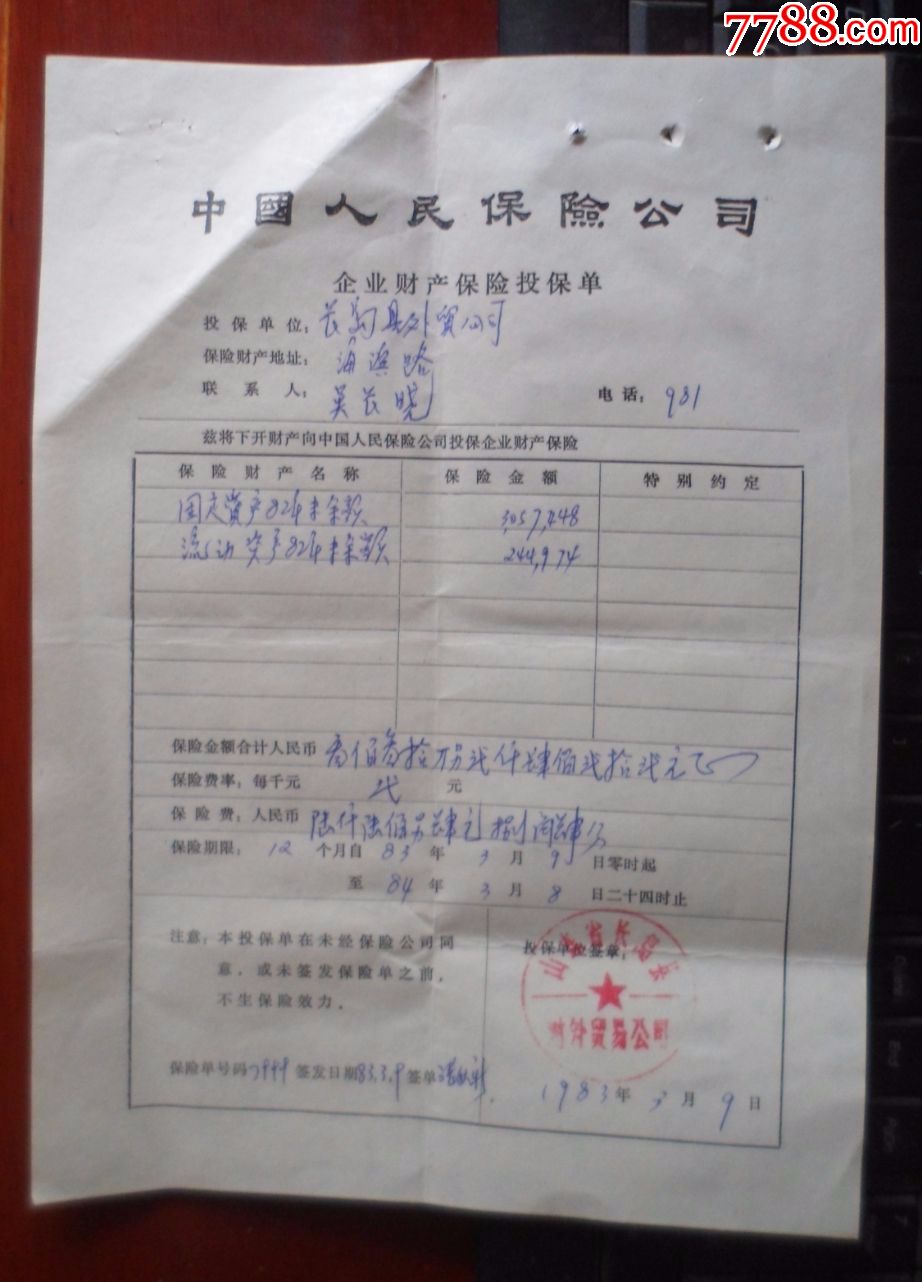 7788.com
中國人民保險公司
企业财产保险投保单
投保单位：长岛县外贸公司
保险财产地址：海滨路
联系人：吴长晓 电话：981
兹将下开财产向中国人民保险公司投保企业财产保险
保险财产名称 保险金额 特别约定
固定资产82年末余额 3,057,448
流动资产82年末余额 244,974
保险金额合计人民币 叁佰叁拾万另贰仟肆佰贰拾贰元正
保险费率：每千元 贰 元
保险费：人民币 陆仟陆佰另肆元捌角肆分
保险期限：12个月自83年3月9日零时起
至84年3月8日二十四时止
注意：本投保单在未经保险公司同
意，或未签发保险单之前，
不生保险效力。
投保单位签章：
山东省长岛县
对外贸易公司
保险单号码 签发日期83.3.9签单
1983年3月9日